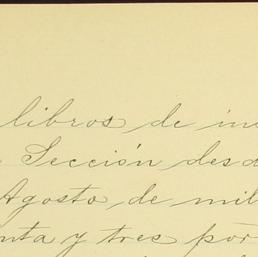 libros de in
Sección desd
Agosto de mil
nta y tres por